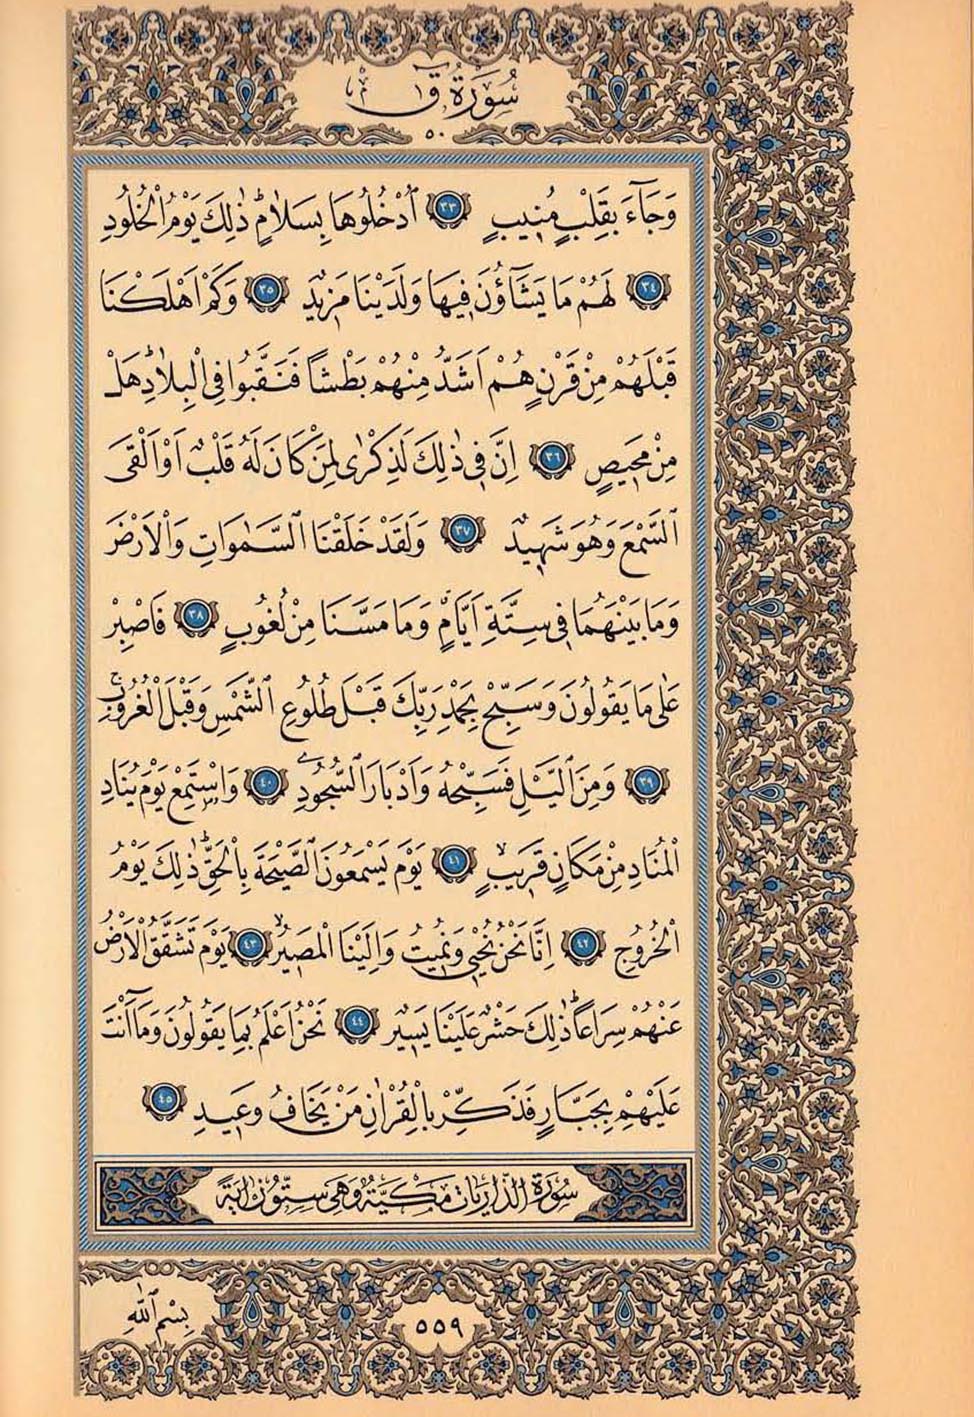 سُورَةُ قٓ
٥٠
وَجَٓاءَ بِقَلْبٍ مُنٖيبٍ ﴿٣٣﴾ اُدْخُلُوهَا بِسَلَامٍ ذٰلِكَ يَوْمُ الْخُلُودِ
﴿٣٤﴾ لَهُمْ مَا يَشَٓاؤُنَ فٖيهَا وَلَدَيْنَا مَزٖيدٌ ﴿٣٥﴾ وَكَمْ اَهْلَكْنَا
قَبْلَهُمْ مِنْ قَرْنٍ هُمْ اَشَدُّ مِنْهُمْ بَطْشًا فَنَقَّبُوا فِى الْبِلَادِ هَلْ
مِنْ مَحٖيصٍ ﴿٣٦﴾ اِنَّ فٖى ذٰلِكَ لَذِكْرٰى لِمَنْ كَانَ لَهُ قَلْبٌ اَوْ اَلْقَى
السَّمْعَ وَهُوَ شَهٖيدٌ ﴿٣٧﴾ وَلَقَدْ خَلَقْنَا السَّمٰوَاتِ وَالْاَرْضَ
وَمَا بَيْنَهُمَا فٖى سِتَّةِ اَيَّامٍ وَمَا مَسَّنَا مِنْ لُغُوبٍ ﴿٣٨﴾ فَاصْبِرْ
عَلٰى مَا يَقُولُونَ وَسَبِّحْ بِحَمْدِ رَبِّكَ قَبْلَ طُلُوعِ الشَّمْسِ وَقَبْلَ الْغُرُوبِ
﴿٣٩﴾ وَمِنَ الَّيْلِ فَسَبِّحْهُ وَاَدْبَارَ السُّجُودِ ﴿٤٠﴾ وَاسْتَمِعْ يَوْمَ يُنَادِ
الْمُنَادِ مِنْ مَكَانٍ قَرٖيبٍ ﴿٤١﴾ يَوْمَ يَسْمَعُونَ الصَّيْحَةَ بِالْحَقِّ ذٰلِكَ يَوْمُ
الْخُرُوجِ ﴿٤٢﴾ اِنَّا نَحْنُ نُحْيٖى وَنُمٖيتُ وَاِلَيْنَا الْمَصٖيرُ ﴿٤٣﴾ يَوْمَ تَشَقَّقُ الْاَرْضُ
عَنْهُمْ سِرَاعًا ذٰلِكَ حَشْرٌ عَلَيْنَا يَسٖيرٌ ﴿٤٤﴾ نَحْنُ اَعْلَمُ بِمَا يَقُولُونَ وَمَٓا اَنْتَ
عَلَيْهِمْ بِجَبَّارٍ فَذَكِّرْ بِالْقُرْاٰنِ مَنْ يَخَافُ وَعٖيدِ ﴿٤٥﴾
سُورَةُ الذَّارِيَاتِ مَكِّيَّةٌ وَهِىَ سِتُّونَ اٰيَةً
بِسْمِ اللّٰهِ
٥٥٩